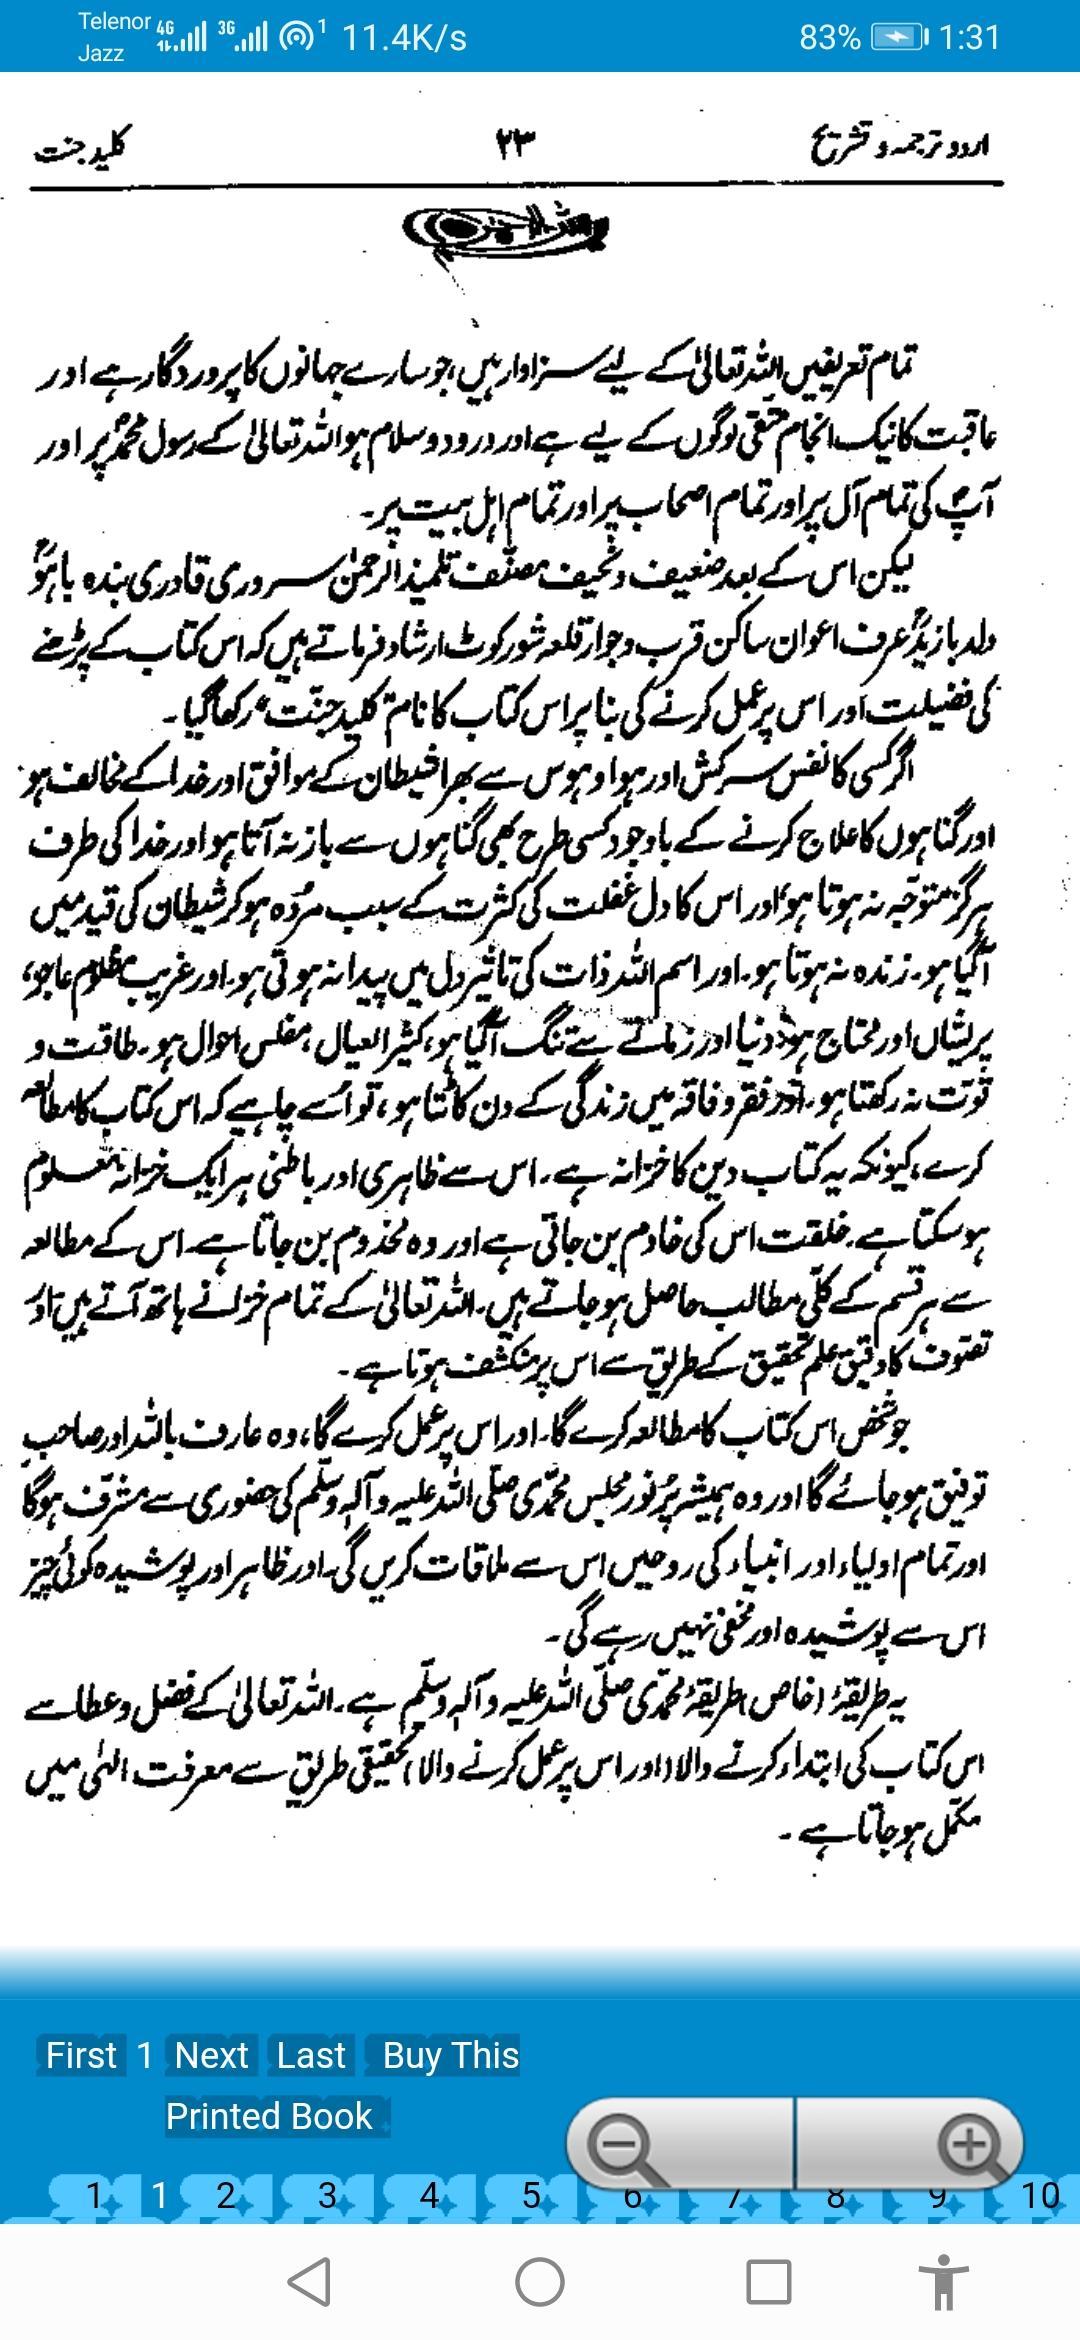 Telenor 4G 3G 1 11.4K/s 83% 1:31
Jazz
اردو ترجمہ و تشریح ۲۳ کلید جنت
تمام تعریفیں اللہ تعالیٰ کے لیے سزاوار ہیں، جو سارے جہانوں کا پروردگار ہے اور
عاقبت کا نیک انجام متقی لوگوں کے لیے ہے اور درود و سلام ہو اللہ تعالیٰ کے رسول محمدؐ پر اور
آپؐ کی تمام آل پر اور تمام اصحاب پر اور تمام اہل بیت پر۔
لیکن اس کے بعد ضعیف و نحیف مصنّف تلمیذ الرحمٰن سروری قادری بندہ باہوؒ
ولد بازیدؒ عرف اعوان ساکن قرب و جوار قلعہ شورکوٹ ارشاد فرماتے ہیں کہ اس کتاب کے پڑھنے
کی فضیلت اور اس پر عمل کرنے کی بنا پر اس کتاب کا نام "کلید جنّت" رکھا گیا۔
اگر کسی کا نفس سرکش اور ہوا و ہوس سے بھرا شیطان کے موافق اور خدا کے مخالف ہو
اور گناہوں کا علاج کرنے کے باوجود کسی طرح بھی گناہوں سے باز نہ آتا ہو اور خدا کی طرف
ہرگز متوجّہ نہ ہوتا ہو، اور اس کا دل غفلت کی کثرت کے سبب مُردہ ہو کر شیطان کی قید میں
آگیا ہو۔ زندہ نہ ہوتا ہو۔ اور اسم اللہ ذات کی تاثیر دل میں پیدا نہ ہوتی ہو۔ اور غریب مظلوم عاجز،
پریشاں اور محتاج ہو، دنیا اور زمانے سے تنگ آگیا ہو، کثیر العیال، مفلس احوال ہو۔ طاقت و
قوّت نہ رکھتا ہو۔ اور فقر و فاقہ میں زندگی کے دن کاٹتا ہو، تو اُسے چاہیے کہ اس کتاب کا مطالعہ
کرے، کیونکہ یہ کتاب دین کا خزانہ ہے۔ اس سے ظاہری اور باطنی ہر ایک خزانہ معلوم
ہو سکتا ہے۔ خلقت اس کی خادم بن جاتی ہے اور وہ مخدوم بن جاتا ہے۔ اس کے مطالعہ
سے ہر قسم کے کلّی مطالب حاصل ہو جاتے ہیں۔ اللہ تعالیٰ کے تمام خزانے ہاتھ آتے ہیں، اور
تصّوف کا دقیق علم تحقیق کے طریق سے اس پر منکشف ہوتا ہے۔
جو شخص اس کتاب کا مطالعہ کرے گا۔ اور اس پر عمل کرے گا، وہ عارف باللہ اور صاحبِ
توفیق ہو جائے گا اور وہ ہمیشہ پُر نور مجلس محمّدی صلّی اللہ علیہ وآلہٖ وسلّم کی حضوری سے مشرّف ہوگا
اور تمام اولیاء اور انبیاء کی روحیں اس سے ملاقات کریں گی۔ اور ظاہر اور پوشیدہ کوئی چیز
اس سے پوشیدہ اور مخفی نہیں رہے گی۔
یہ طریقۂ (خاص) طریقۂ محمّدی صلّی اللہ علیہ وآلہٖ وسلّم ہے۔ اللہ تعالیٰ کے فضل و عطا سے
اس کتاب کی ابتداء کرنے والا (اور اس پر عمل کرنے والا) تحقیقی طریق سے معرفت الہٰی میں
مکمّل ہو جاتا ہے۔
First 1 Next Last Buy This
Printed Book
1 1 2 3 4 5 6 7 8 9 10